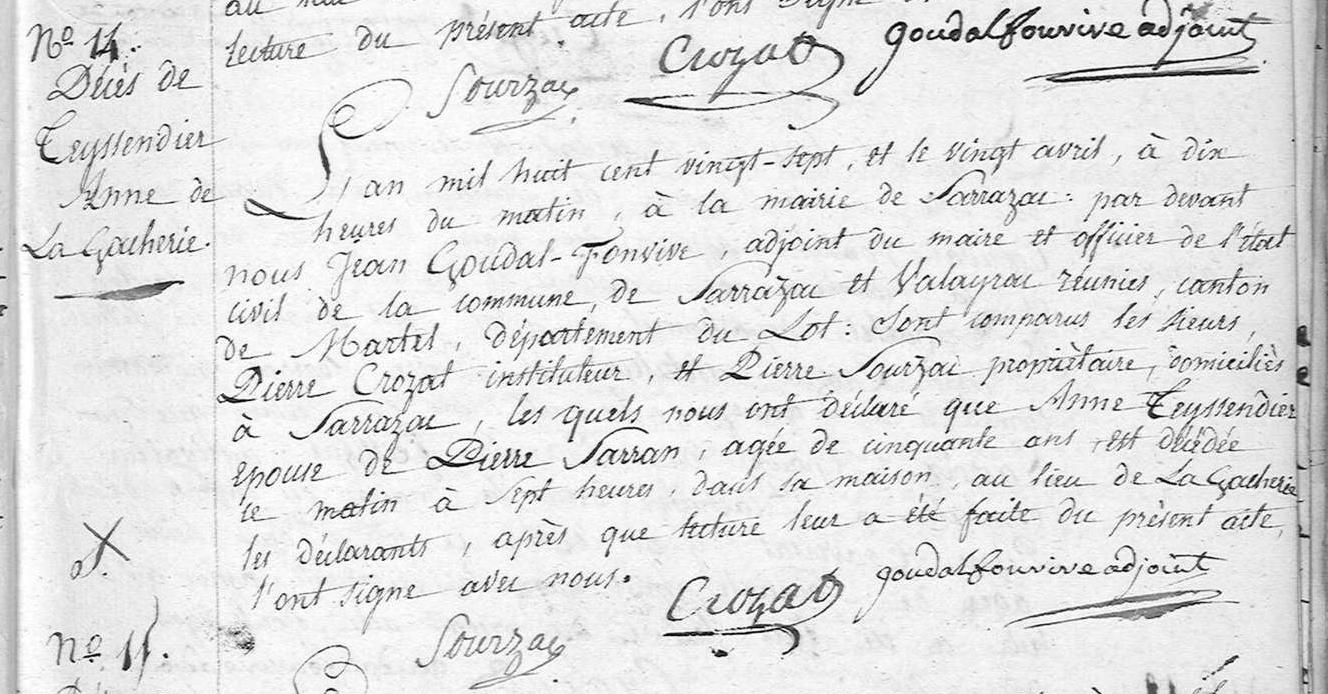 lecture du présent acte, l'ont signé
Sourzac Crozat goudalfonvive adjoint
N.º 14.
Décès de
Teyssendier
Anne de
La Gacherie.
L'an mil huit cent vingt-sept, et le vingt avril, à dix
heures du matin, à la mairie de Sarrazac : par devant
nous Jean Goudal-Fonvive, adjoint du maire et officier de l'état
civil de la commune, de Sarrazac et Valayrac réunies, canton
de Martel, département du Lot : Sont comparus les sieurs,
Pierre Crozat instituteur, et Pierre Sourzac propriètaire, domiciliés
à Sarrazac, les quels nous ont déclaré que Anne Teyssendier
epouse de Pierre Sarran, agée de cinquante ans, est décédée
ce matin à sept heures, dans sa maison, au lieu de La Gacherie
les déclarants, après que lecture leur a été faite du présent acte,
l'ont signé avec nous.
Sourzac Crozat goudalfonvive adjoint
N.º 15.